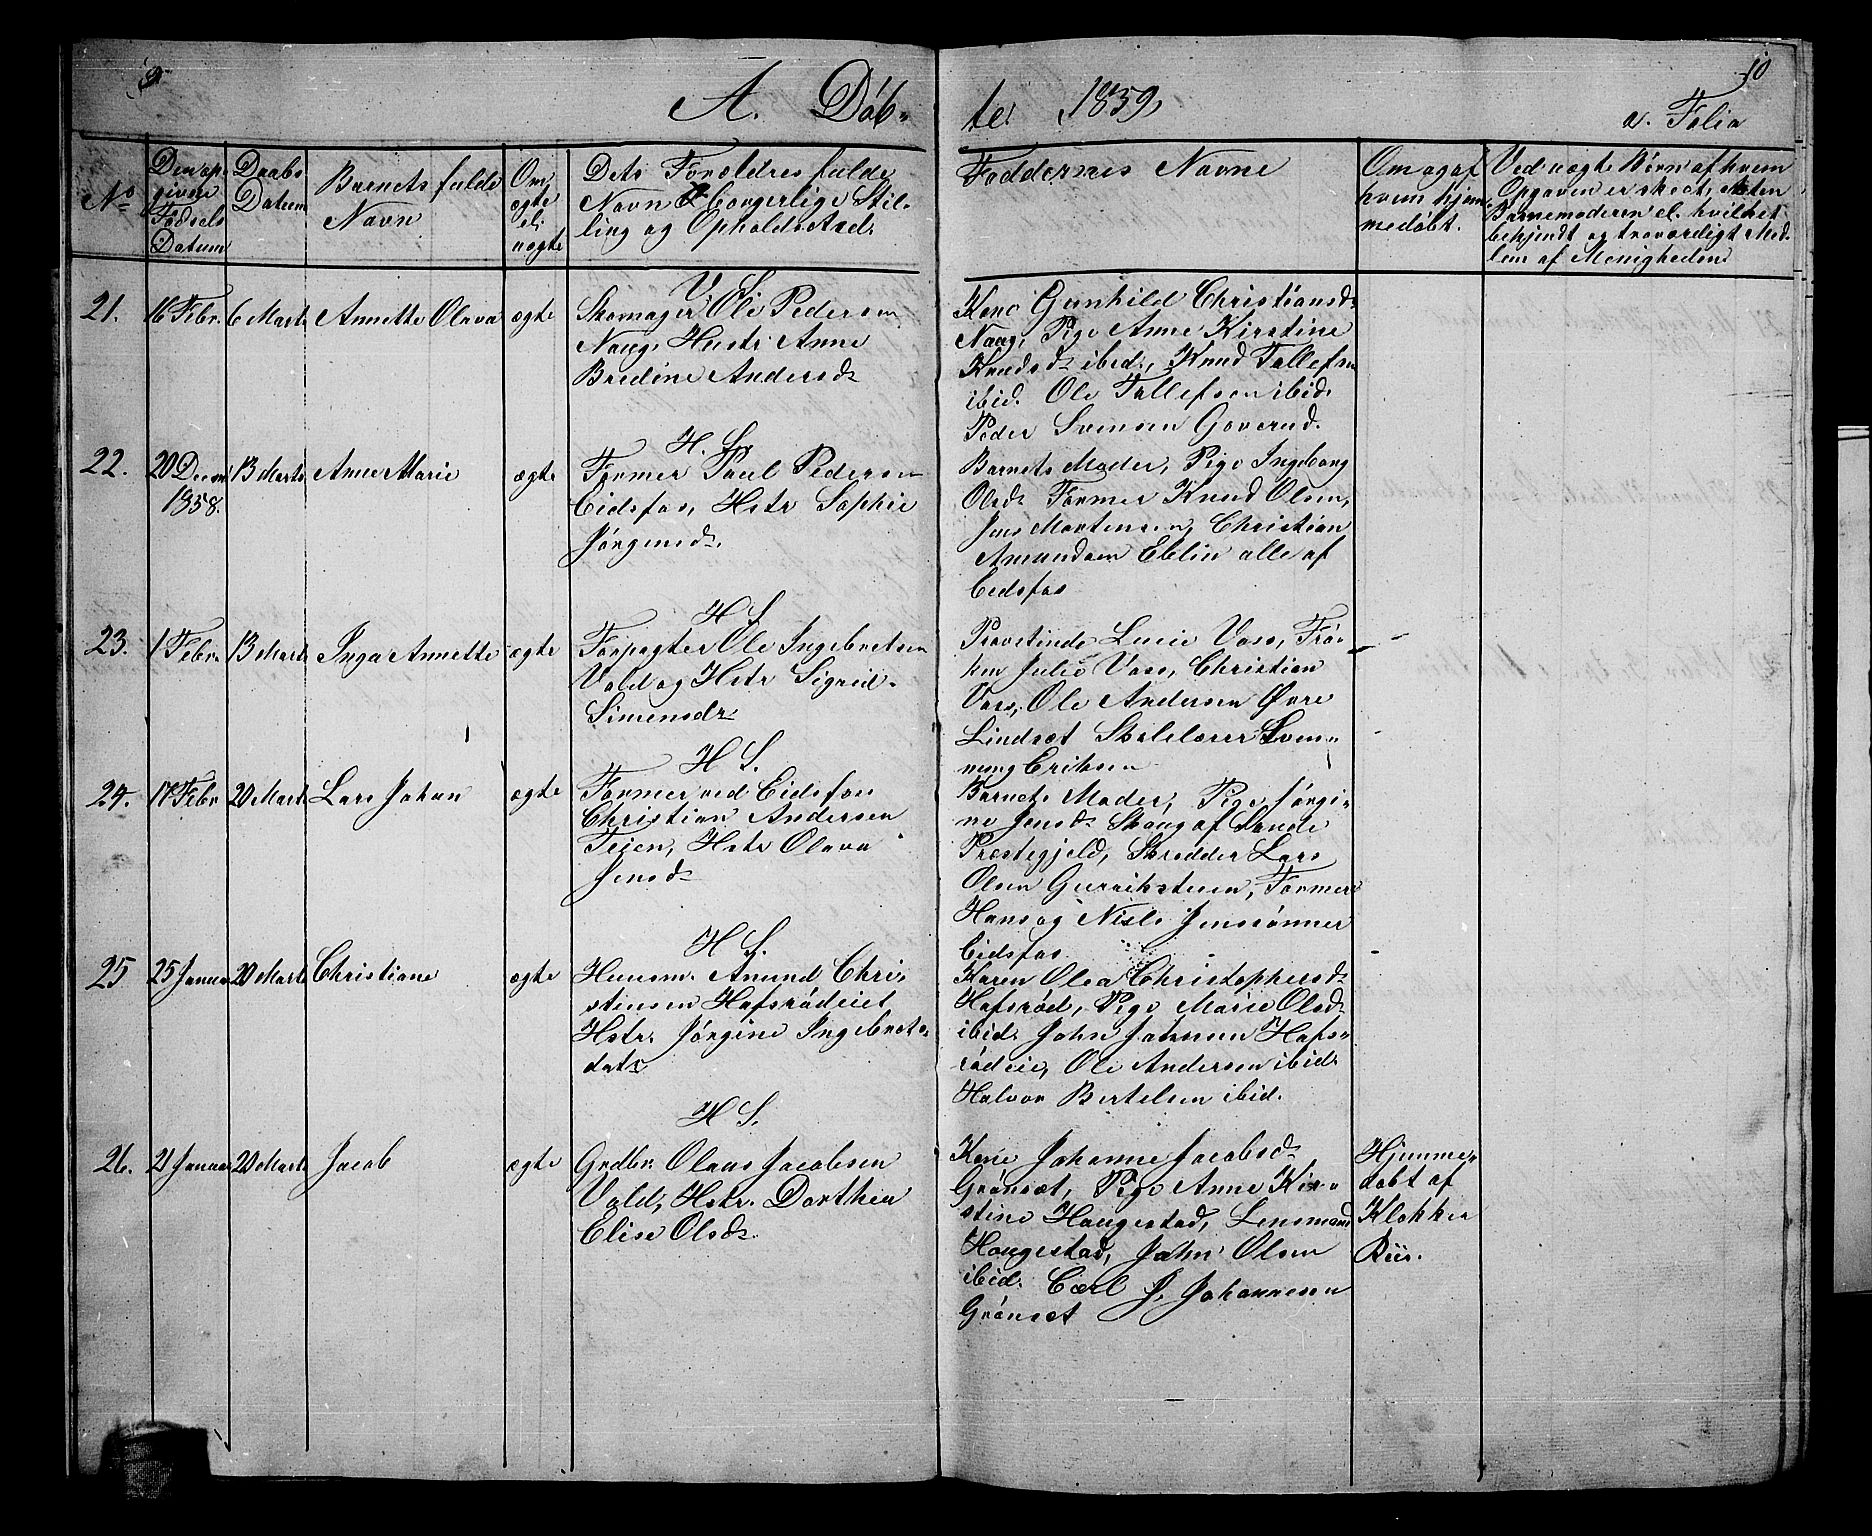 9
10
A. Døb-
te. 1859,
a. Folio
No
Den op-
givne
Fødsels
Datum
Daabs
Datum
Barnets fulde
Navn
Om
ægte
el.
uægte
Dets Forældres fulde
Navn & borgerlige Stil-
ling og Opholdssted.
Faddernes Navne
Om og af
hvem hjem-
medøbt.
Ved uægte Børn af hvem
Opgaven er skeet, enten
Barnemoderen el. hvilket
bekjendt og troværdigt Med-
lem af Menigheden.
V. S.
21. 16 Febr. 6 Marts Annette Olava ægte Skomager Ole Pedersen
Naug, Hustr Anne
Bredine Andersd.
Kone Gunhild Christiansd.
Naug, Pige Anne Kirstine
Knudsd. ibid., Knud Tollefsen
ibid. Ole Tollefsen ibid.
Peder Svensen Goverud.
H. S.
22. 20 Decem 13 Marts Anne Marie ægte Former Paul Pedersen
1858.
Eidsfos, Hstr Sophie
Jørgensd.
Barnets Moder, Pige Ingeborg
Olsd. Former Knud Olsen,
Jens Mortensen, Christian
Amundsen Eblin alle af
Eidsfos
H S
23. 1 Febr. 13 Marts Inga Annette ægte Forpagter Ole Ingebretsen
Vold og Hstr Sigrid
Simensdr
Provstinde Lucie Voss, Frø-
ken Julie Voss, Christian
Voss, Ole Andersen Øvre
Lindsæt Skolelærer Sven-
nung Eriksen
H S.
24. 17 Febr 20 Marts Lars Johan ægte Former ved Eidsfos
Christian Andersen
Teien, Hstr Olava
Jensd.
Barnets Moder, Pige Jørgi-
ne Jensd. Skoug af Sande
Præstegjeld, Skredder Lars
Olsen Former
Hans og Nils Jenssønner
Eidsfos
H S.
25 25 Januar 20 Marts Christiane ægte Huusm. Amund Chri-
stensen Hafsrødeiet
Hstr. Jørgine Ingebrets-
datr.
Karen Olea Christophersd.
Hafsrød, Pige Marie Olsd.
ibid. John Johnsen Hafs-
rødeie, Ole Andersen ibid.
Halvor Bertelsen ibid.
H S.
26. 21 Januar 20 Marts Jacob ægte Grdbr. Olaus Jacobsen
Vold, Hstr. Dorthea
Elise Olsd.
Kone Johanne Jacobsd.
Grønsæt, Pige Anne Kir-
stine Haugestad, Lensmand
Haugestad, John Olsen
ibid. Carl J. Johannesen
Grønsæt
Hjemme-
døbt af
Klokker
Riis.